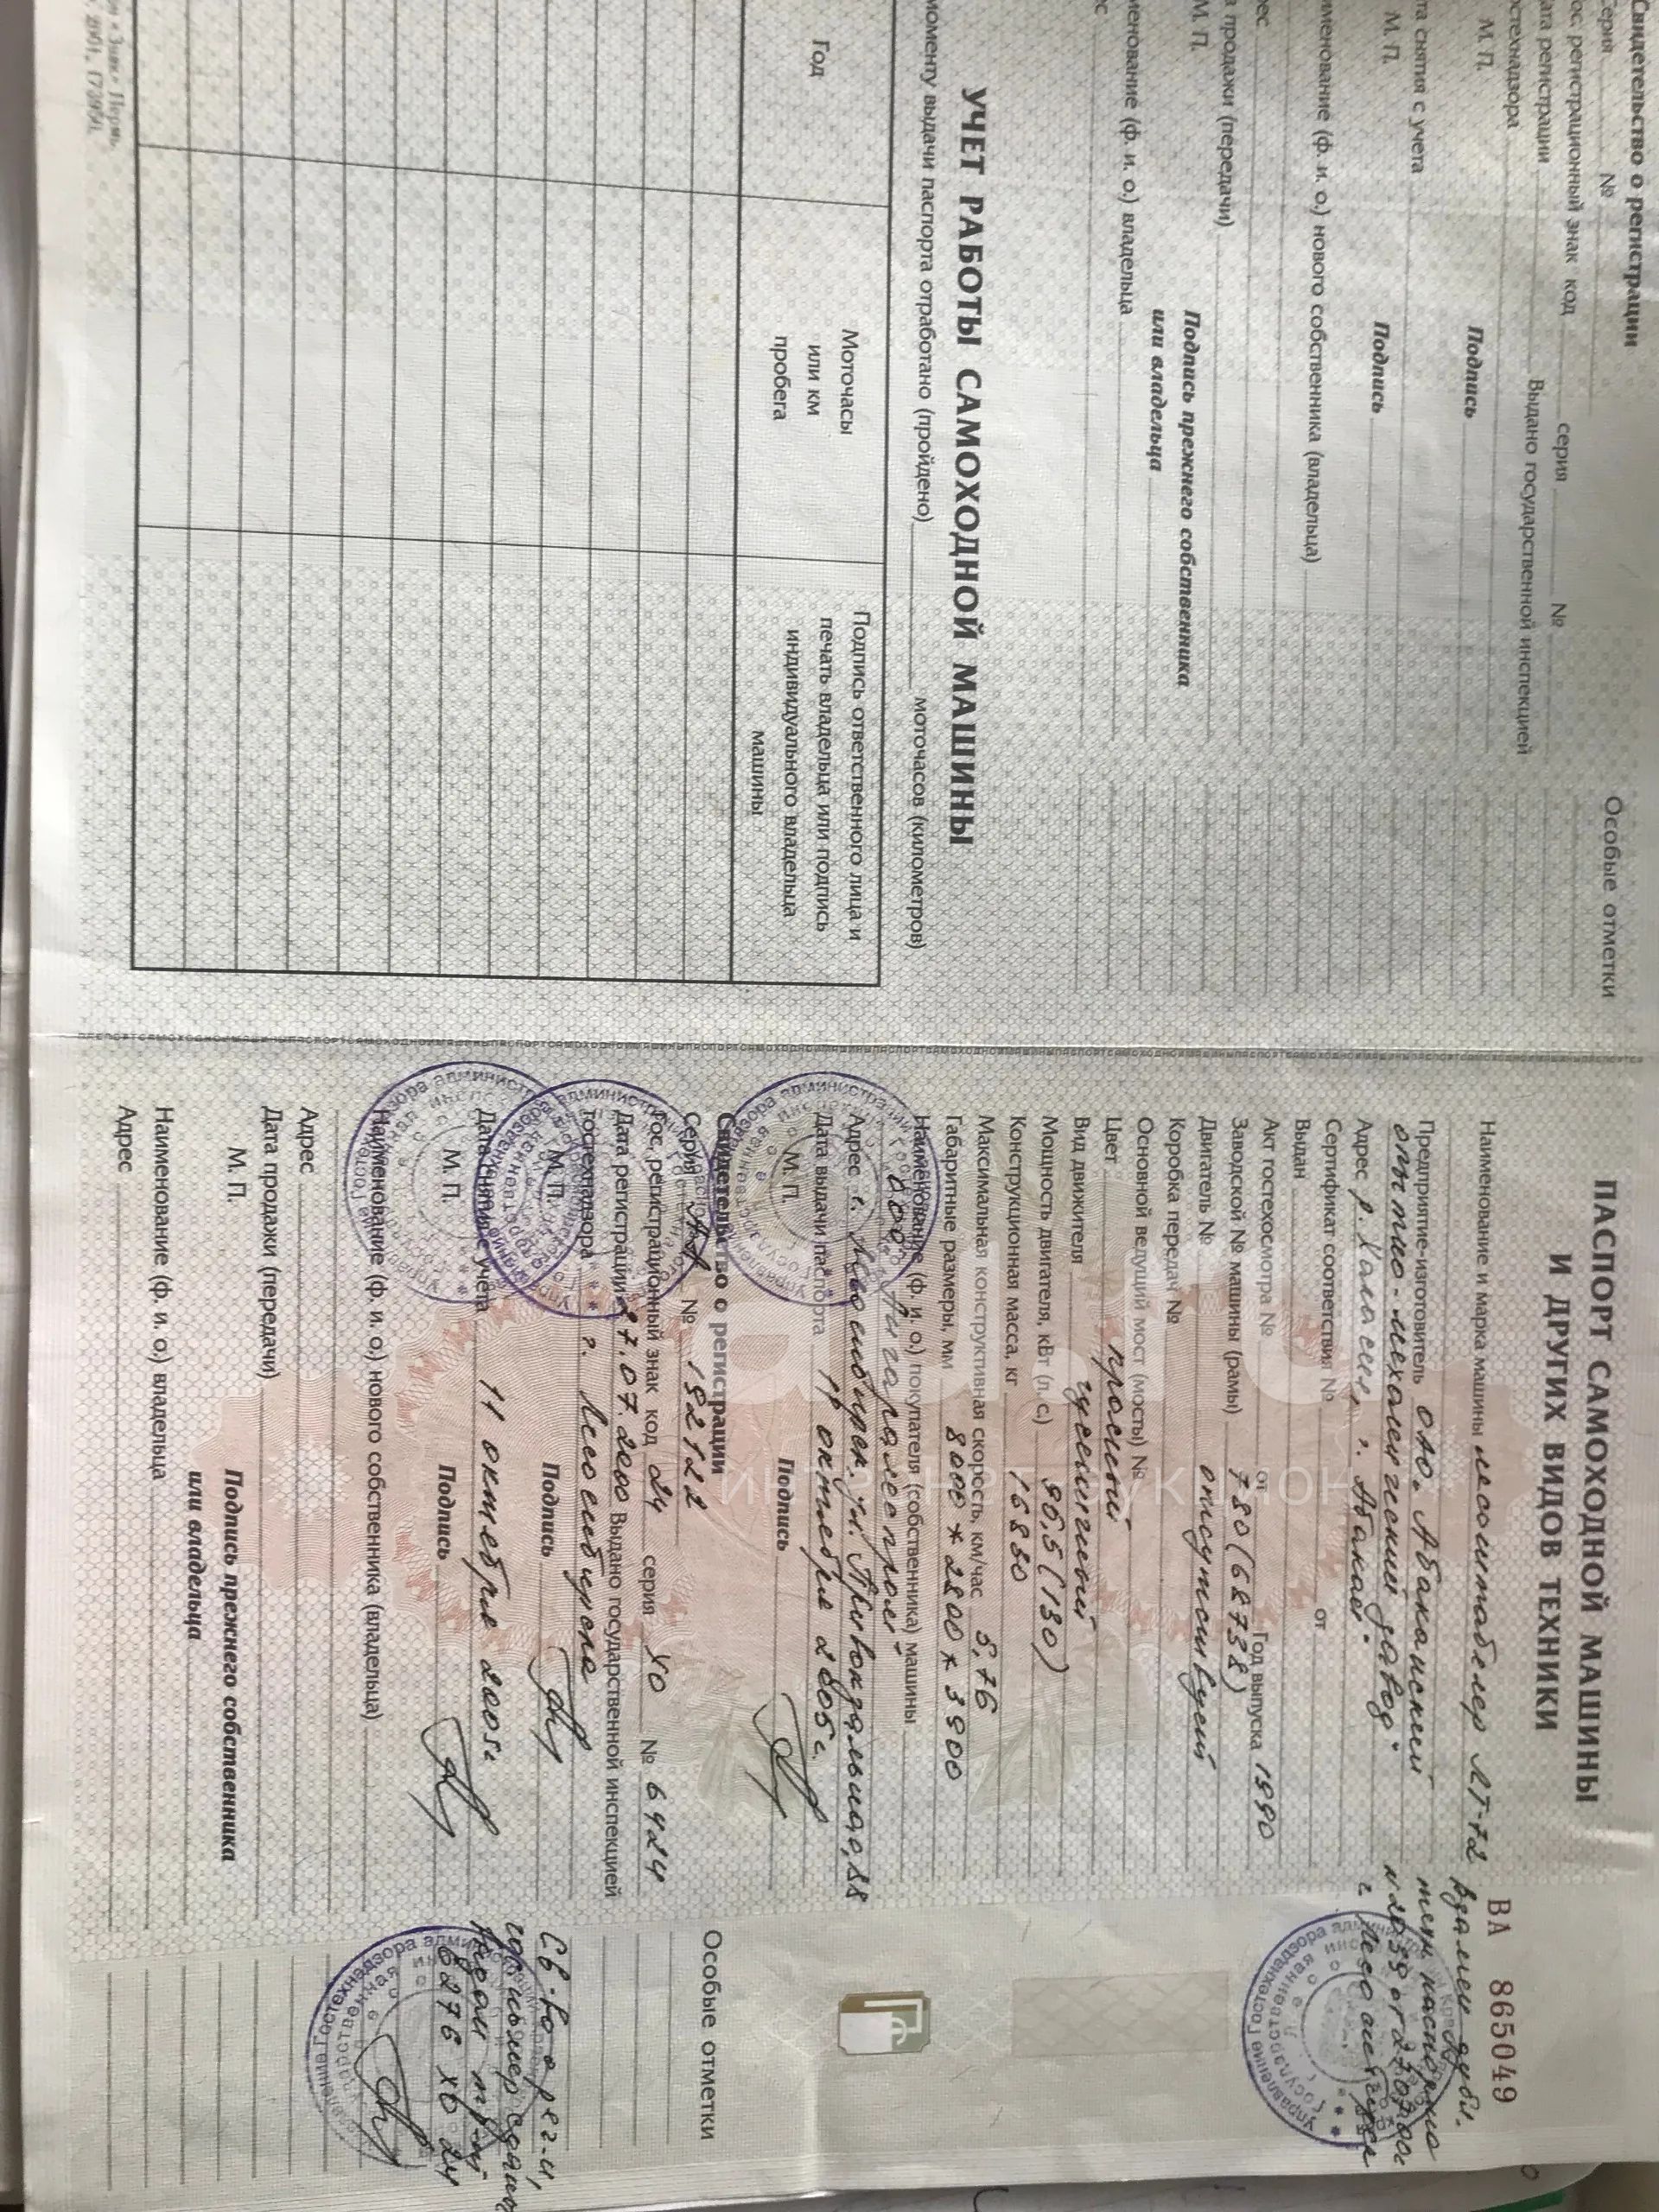 ПАСПОРТ САМОХОДНОЙ МАШИНЫ
И ДРУГИХ ВИДОВ ТЕХНИКИ
ВА 865049
Наименование и марка машины лесоштабелер ЛТ-72
Взамен дубл.
Предприятие-изготовитель ОАО "Абаканский
опытно-механический завод"
Адрес р. Хакасия, г. Абакан
г. Лесосибирск
Сертификат соответствия № от
Выдан
Акт гостехосмотра № от
Год выпуска 1990
Заводской № машины (рамы) 780 (68738)
Двигатель № отсутствует
Коробка передач №
Основной ведущий мост (мосты) №
Цвет красный
Вид движителя гусеничный
Мощность двигателя, кВт (л.с.) 96,5 (130)
Конструкционная масса, кг 16880
Максимальная конструктивная скорость, км/час 5,76
Габаритные размеры, мм 8000 * 2800 * 3900
Наименование (ф. и. о.) покупателя (собственника) машины
ООО "Ангаралеспром"
Адрес г. Лесосибирск, ул. Привокзальная, 88
Дата выдачи паспорта 11 октября 2005г.
М. П. Подпись
Свидетельство о регистрации
Серия АА № 192122
Гос. регистрационный знак код 24 серия ХО № 6424
Дата регистрации 27.07.2000 Выдано государственной инспекцией
гостехнадзора г. Лесосибирска
М. П. Подпись
Дата снятия с учета 11 октября 2005г.
М. П. Подпись
Наименование (ф. и. о.) нового собственника (владельца)
Адрес
Дата продажи (передачи)
М. П. Подпись прежнего собственника
или владельца
Наименование (ф. и. о.) владельца
Адрес
Особые отметки
Св-во о рег-и,
6276 ХВ 24
Свидетельство о регистрации
Серия №
Гос. регистрационный знак код серия №
Дата регистрации Выдано государственной инспекцией
гостехнадзора
М. П. Подпись
Дата снятия с учета
М. П. Подпись
именование (ф. и. о.) нового собственника (владельца)
рес
а продажи (передачи)
М. П. Подпись прежнего собственника
или владельца
менование (ф. и. о.) владельца
с
Особые отметки
УЧЕТ РАБОТЫ САМОХОДНОЙ МАШИНЫ
моменту выдачи паспорта отработано (пройдено) моточасов (километров)
Год
Моточасы
или км
пробега
Подпись ответственного лица и
печать владельца или подпись
индивидуального владельца
машины